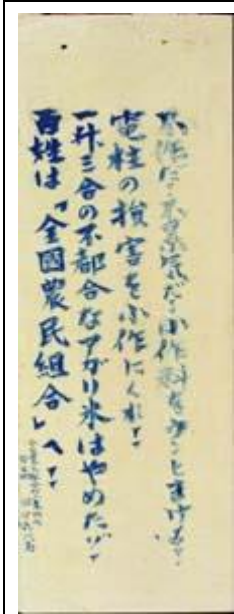 不作だ・不景気だ・小作料をうんとまけろ！
電柱の損害を小作にくれ！
一升三合の不都合なアガリ米はやめたい！
百姓は「全國農民組合」へ！